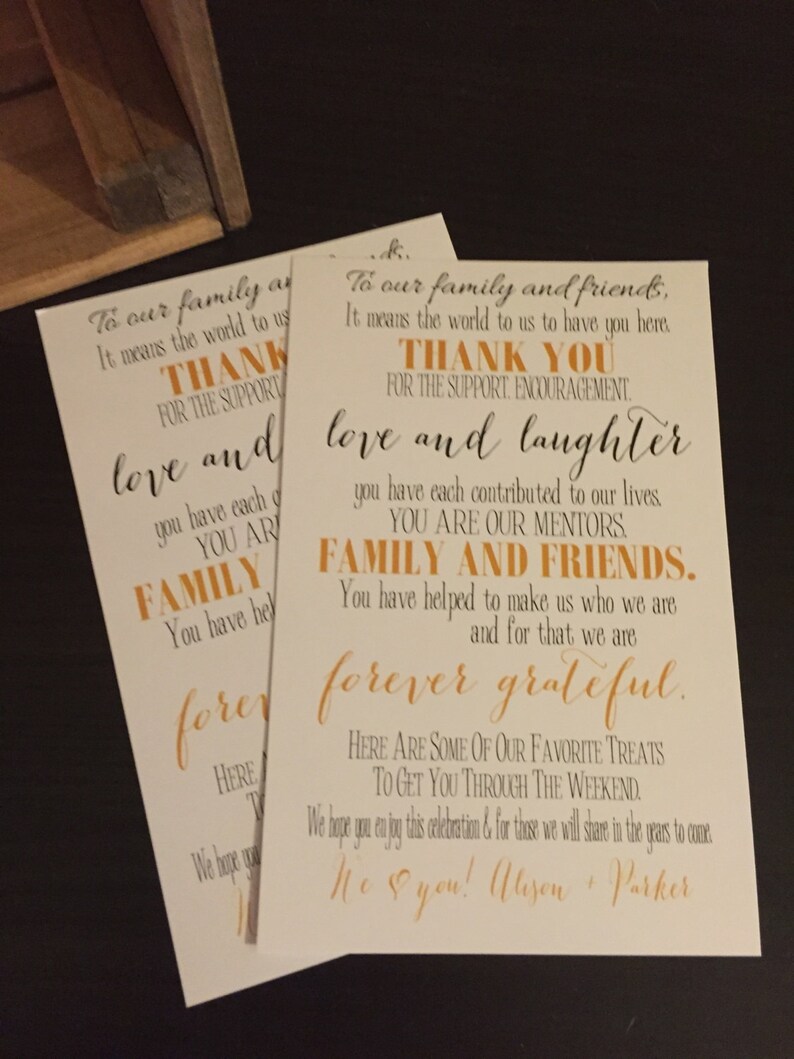 To our family and friends,
It means the world to us to have you here.
THANK YOU
FOR THE SUPPORT. ENCOURAGEMENT.
love and laughter
you have each contributed to our lives.
YOU ARE OUR MENTORS.
FAMILY AND FRIENDS.
You have helped to make us who we are
and for that we are
forever grateful.
HERE ARE SOME OF OUR FAVORITE TREATS
TO GET YOU THROUGH THE WEEKEND.
We hope you enjoy this celebration & for those we will share in the years to come.
We ♡ you! Alison + Parker
To our family an
ds,
It means the world to us
THANK
FOR THE SUPPORT.
love and
you have each c
YOU ARE
FAMILY
You have hel
forev
HERE A
T
We hope you